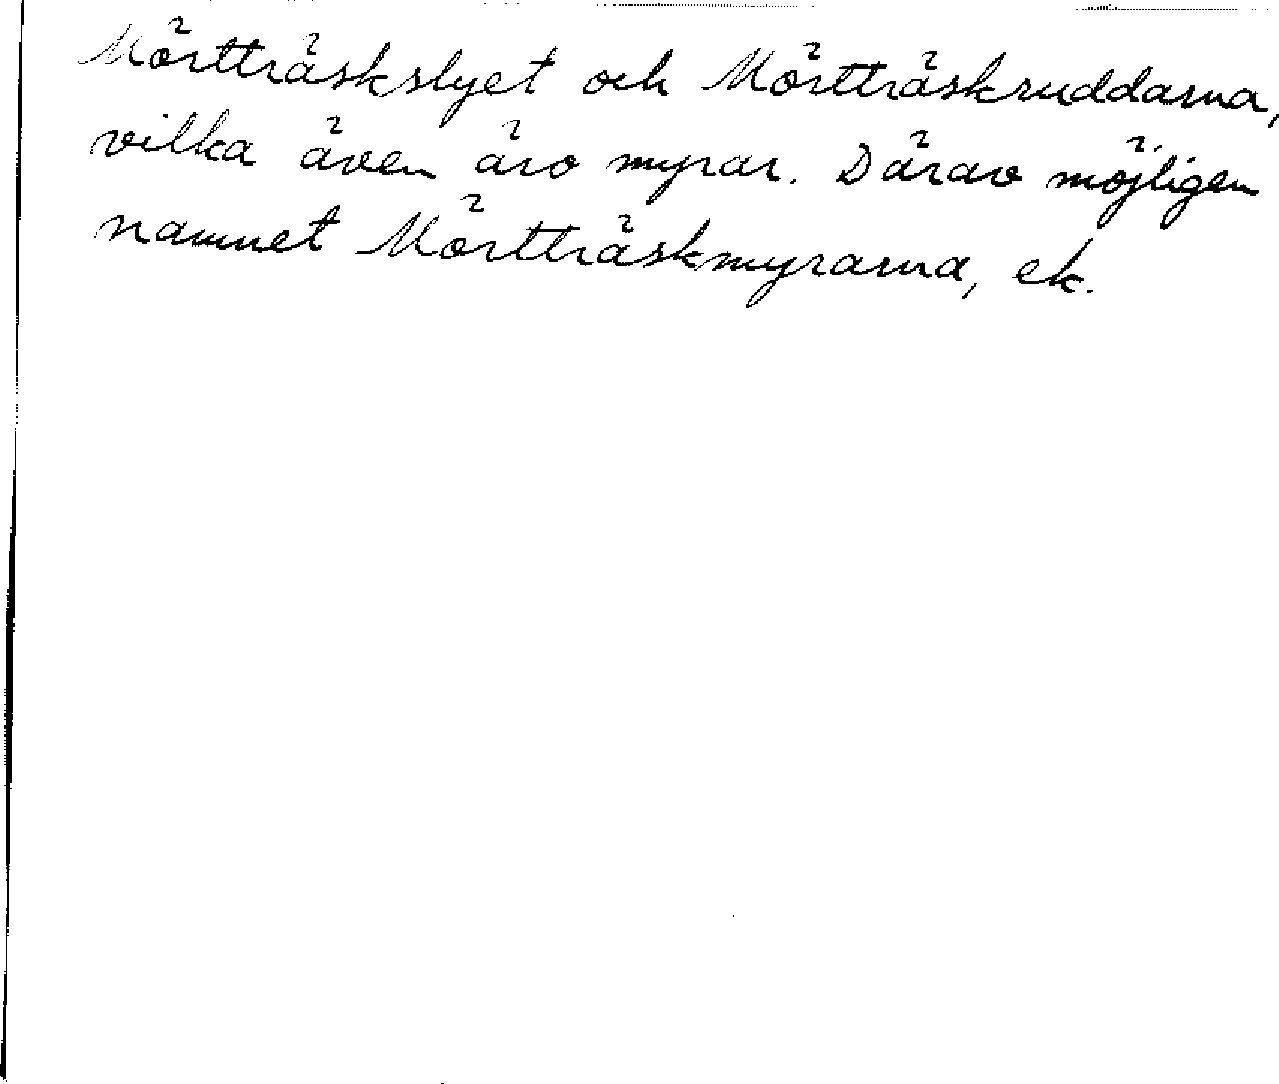 Mörtträskslyet och Mörtträskruddarna,
vilka även äro myrar. Därav möjligen
namnet Mörtträskmyrarna, ek.